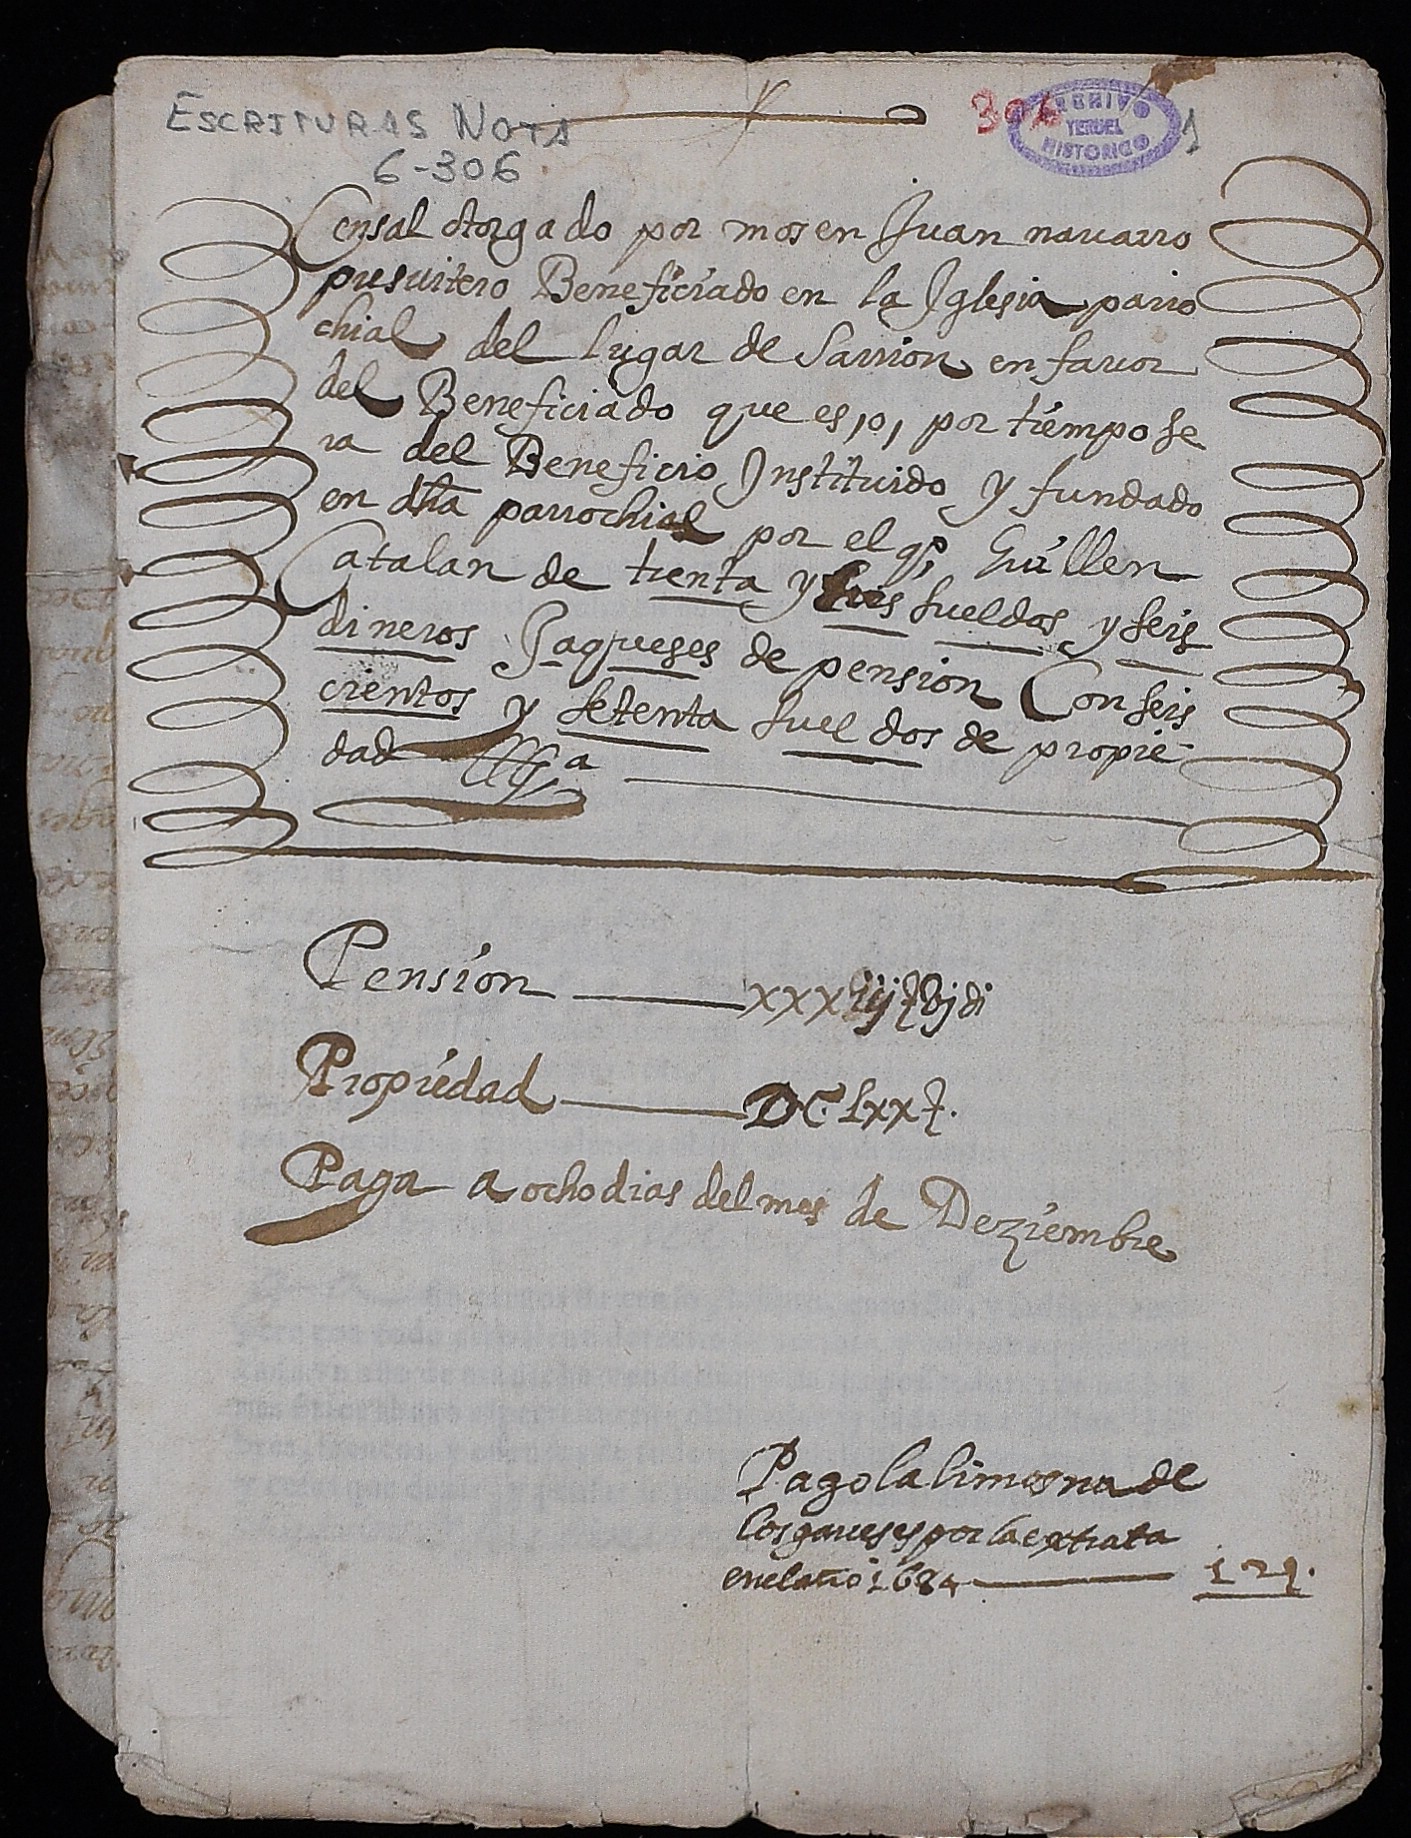 ESCRITURAS NOTA
6-306
306
ARCHIVO
TERUEL
HISTORICO
1
Censal otorgado por mosen Juan nauarro
presuitero Beneficiado en la Iglesia parro
chial del lugar de Sarrion en fauor
del Beneficiado que es, o, por tiempo se
ra del Beneficio Instituido y fundado
en dha parrochial por el qº, Guillen
Catalan de trenta y tres sueldos y seis
dineros Jaqueses de pension Con seis
cientos y setenta sueldos de propie-
dad
Pension xxxiij ſ vj di
Propiedad DC.Lxx ſ.
Paga a ocho dias del mes de Deziembre
Pago la limosna de
los por la extrata
en el año 1684 12